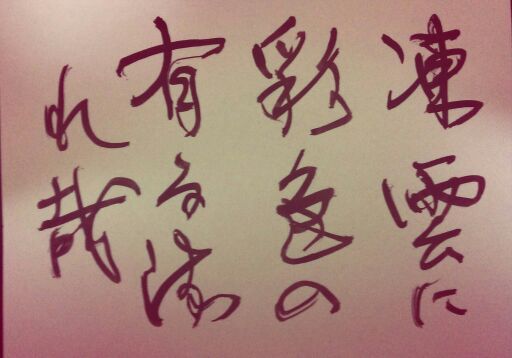 凍雲に
彩色の
有る流
れ哉